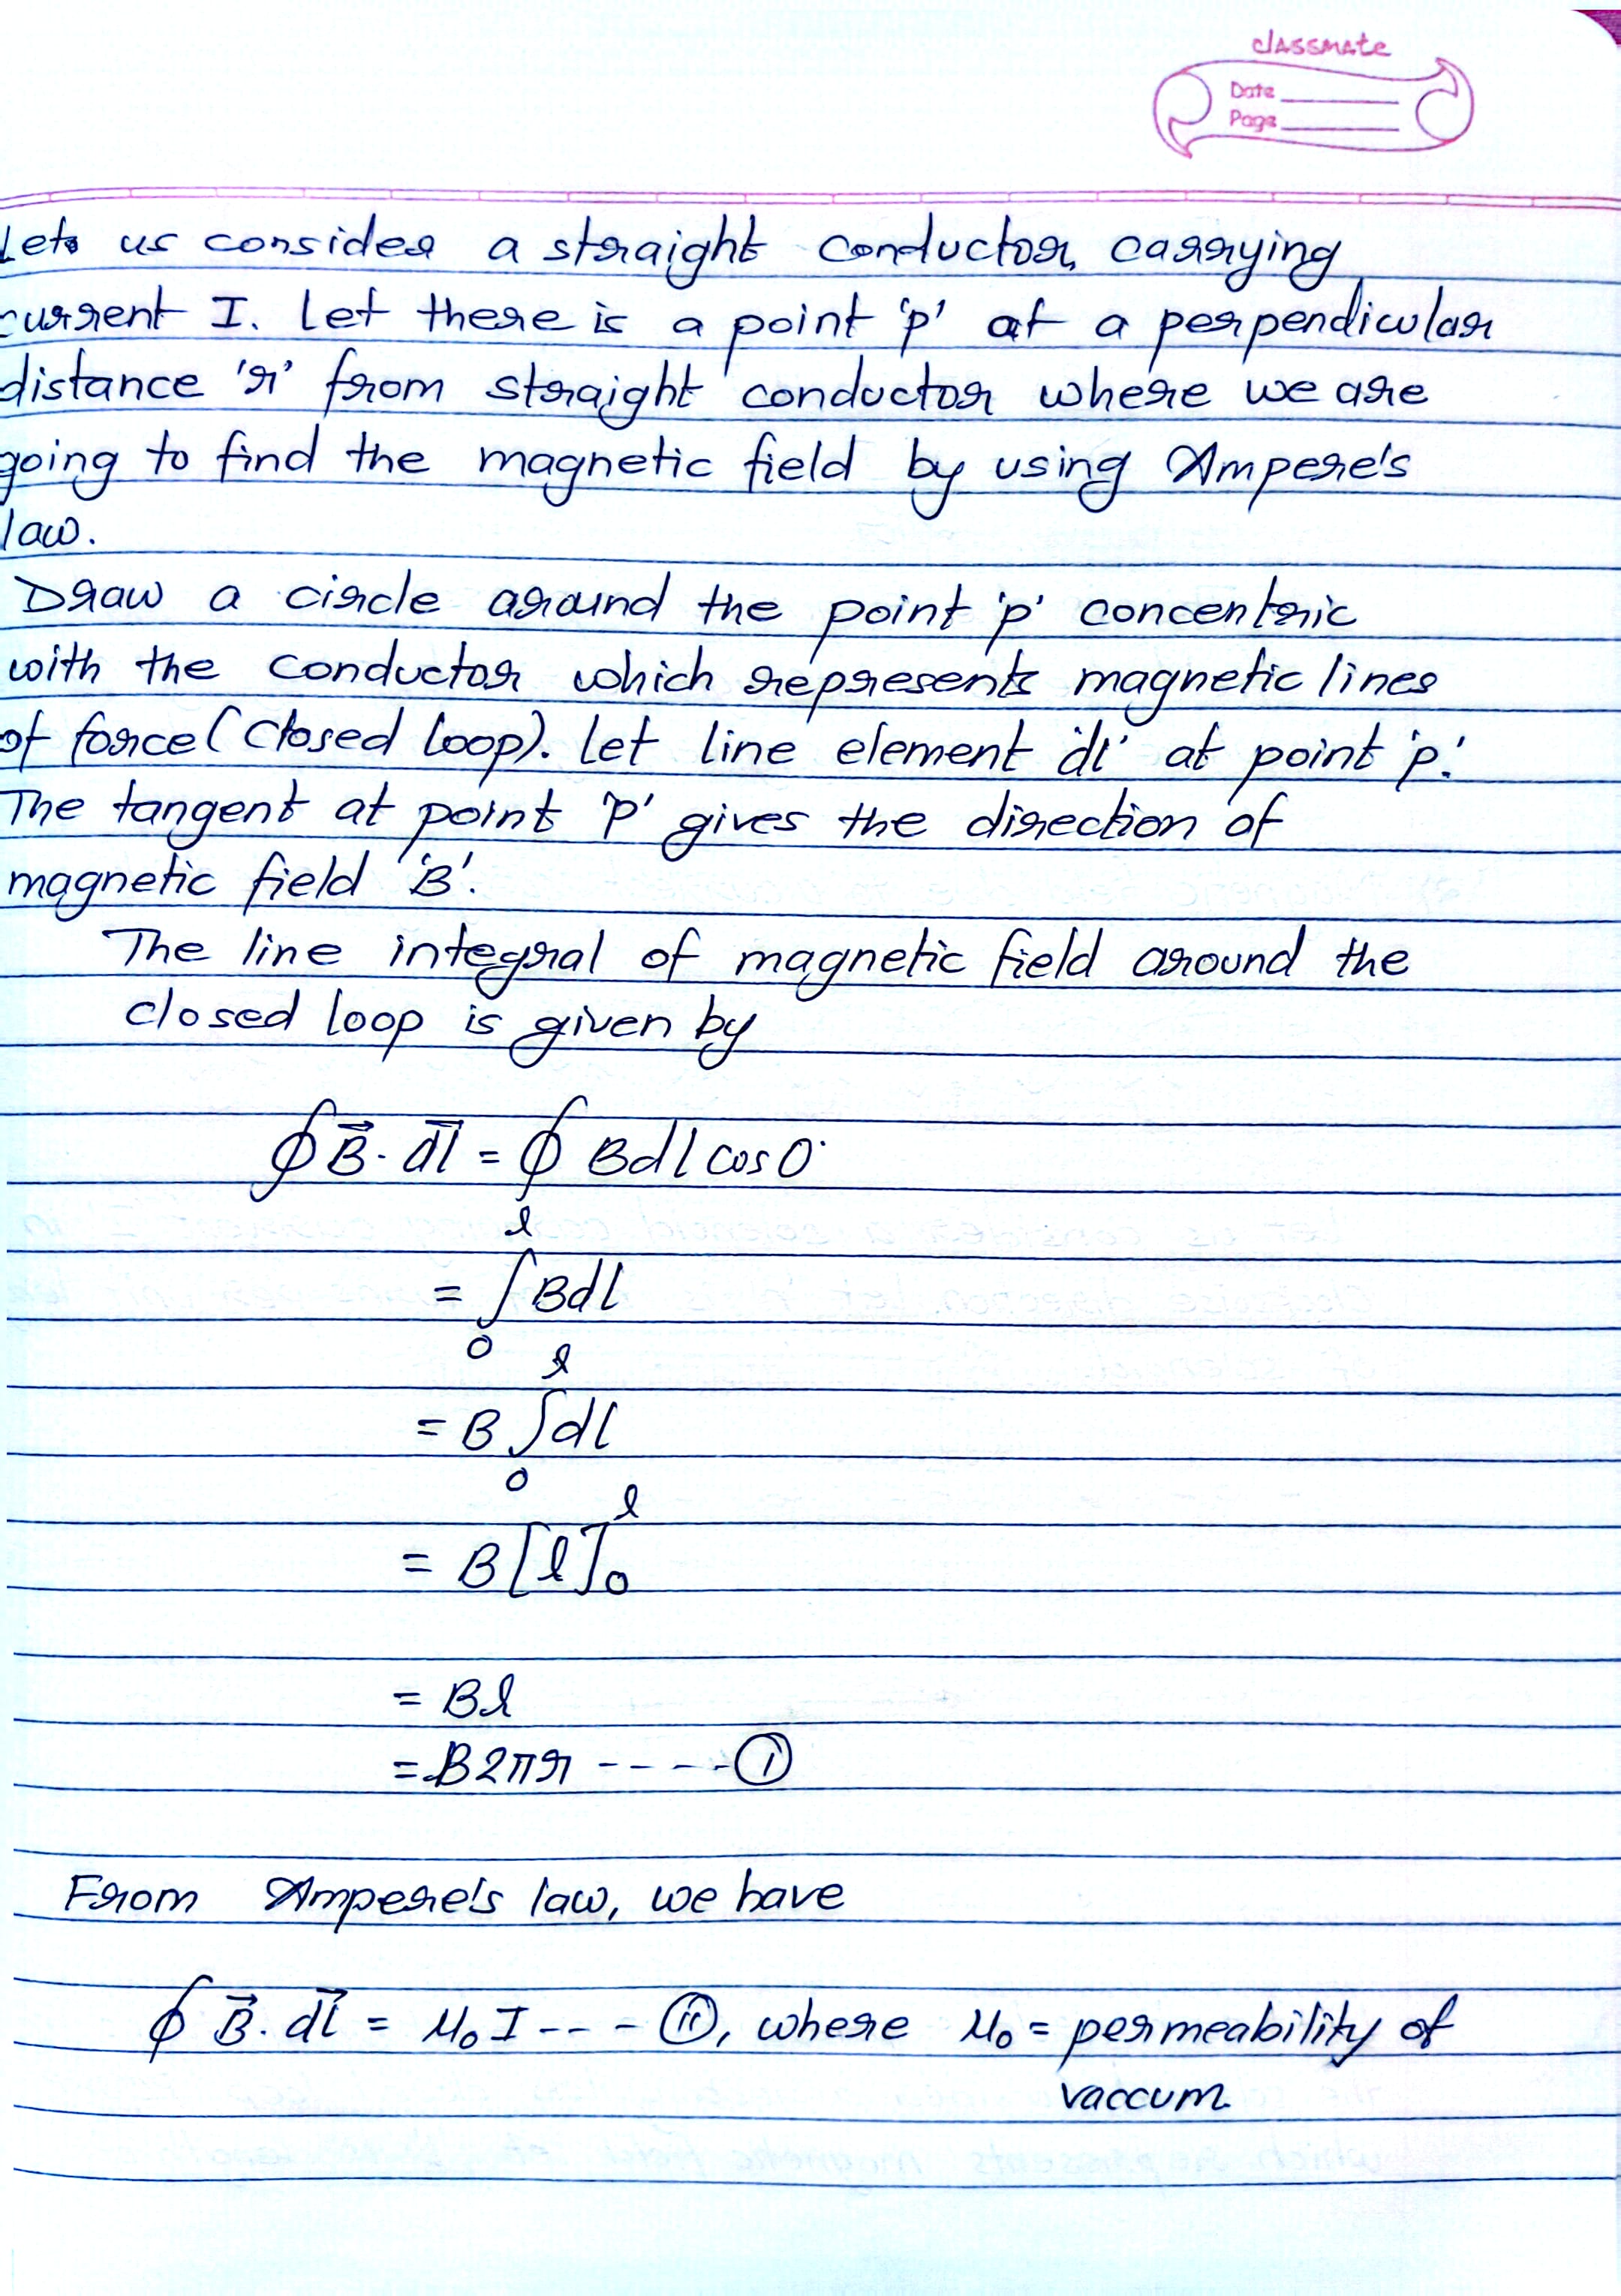 classmate
Date
Page
Let us consider a straight conductor carrying
current I. Let there is a point 'p' at a perpendicular
distance 'r' from straight conductor where we are
going to find the magnetic field by using Ampere's
law.
Draw a circle around the point 'p' concentric
with the conductor which represents magnetic lines
of force (Closed loop). Let line element 'dl' at point 'p'.
The tangent at point 'P' gives the direction of
magnetic field 'B'.
The line integral of magnetic field around the
closed loop is given by
∮ B⃗ · d⃗l = ∮ B dl cos 0°
= ∫₀ˡ B dl
= B ∫₀ˡ dl
= B [l]₀ˡ
= Bl
= B2πr ----- (i)
From Ampere's law, we have
∮ B⃗ · d⃗l = μ₀I --- (ii), where μ₀ = permeability of
vaccum